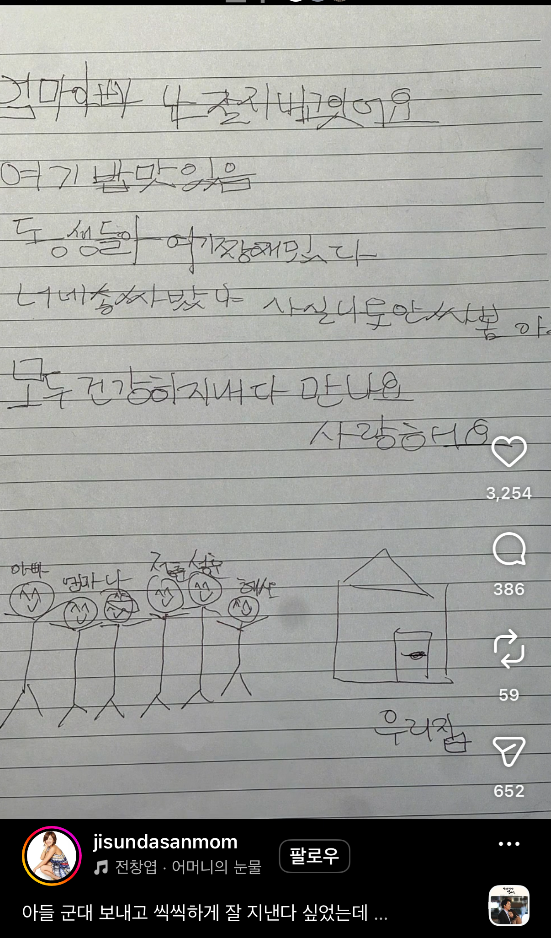 엄마아빠 나 잘지내고있어요
여기 밥맛있음
동생들아 여기짱재밌다
너네 사실나도안싸봄
모두건강하지내다 만나요
사랑해요
아빠 엄마 나
우리집
3,254
386
59
652
jisundasanmom
전창엽 · 어머니의 눈물
팔로우
아들 군대 보내고 씩씩하게 잘 지낸다 싶었는데 ...